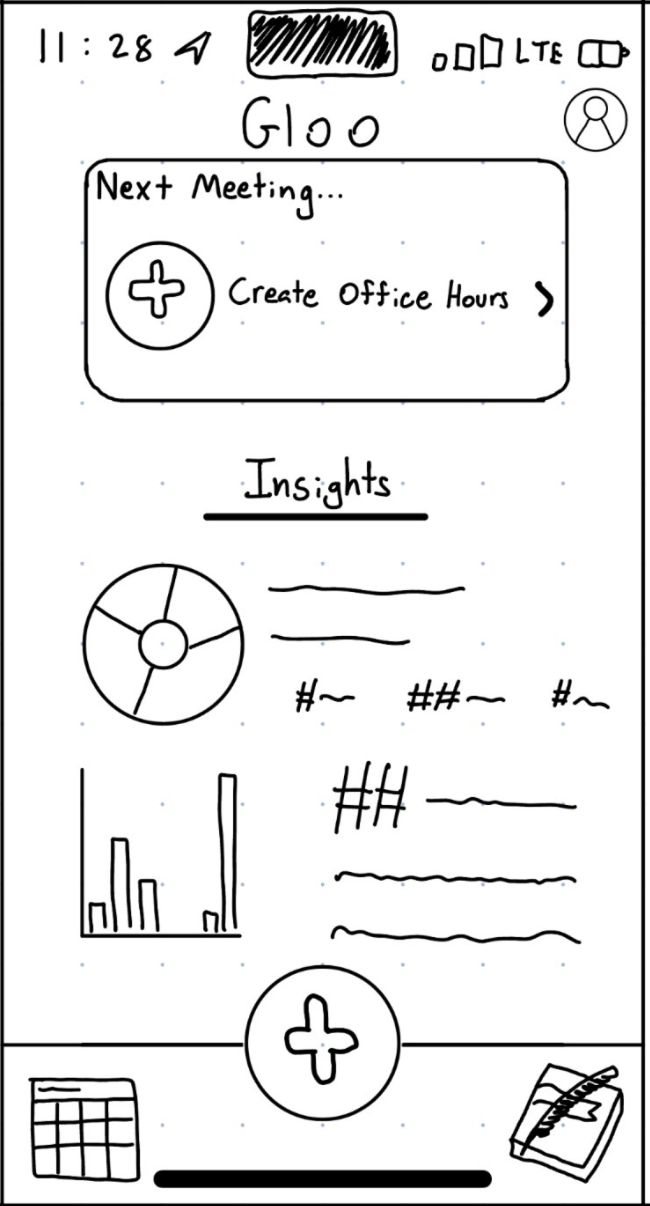 11:28 LTE
Gloo
Next Meeting...
Create Office Hours >
Insights
#~ ##~ #~
##